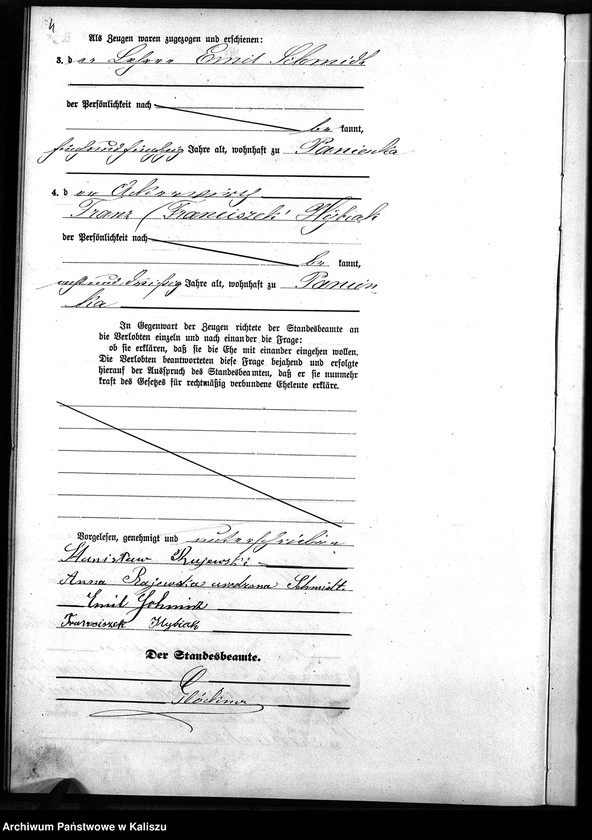 4
Als Zeugen waren zugezogen und erschienen:
3. der Lehrer Emil Schmidt
der Persönlichkeit nach
be kannt,
fünfundfünfzig Jahre alt, wohnhaft zu Panienka
4. der Ackerwirth
Franz (Franciszek)
der Persönlichkeit nach
be kannt,
achtunddreißig Jahre alt, wohnhaft zu Panien
ka
In Gegenwart der Zeugen richtete der Standesbeamte an
die Verlobten einzeln und nach einander die Frage:
ob sie erklären, daß sie die Ehe mit einander eingehen wollen.
Die Verlobten beantworteten diese Frage bejahend und erfolgte
hierauf der Ausspruch des Standesbeamten, daß er sie nunmehr
kraft des Gesetzes für rechtmäßig verbundene Eheleute erkläre.
Vorgelesen, genehmigt und unterschrieben
Stanisław Rajewski
Anna Rajewska urodzona Schmidt.
Emil Schmidt
Franciszek
Der Standesbeamte.
Archiwum Państwowe w Kaliszu